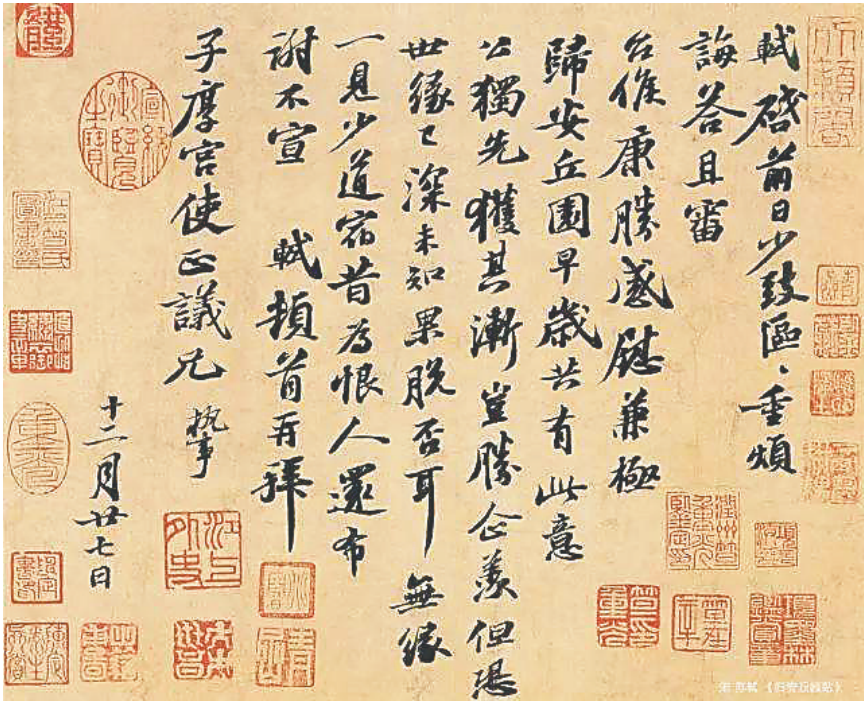 軾啓前日少致區〻重煩
誨答且審
台候康勝感慰兼極
歸安丘園早歲共有此意
公獨先獲其漸豈勝企羨但恐
世緣已深未知果脫否耳無緣
一見少道宿昔為恨人還布
謝不宣 軾頓首再拜
子厚宮使正議兄 執事
十二月廿七日
宣統御覽之寶
重光
江上外史
宋 苏轼 《归安丘园帖》